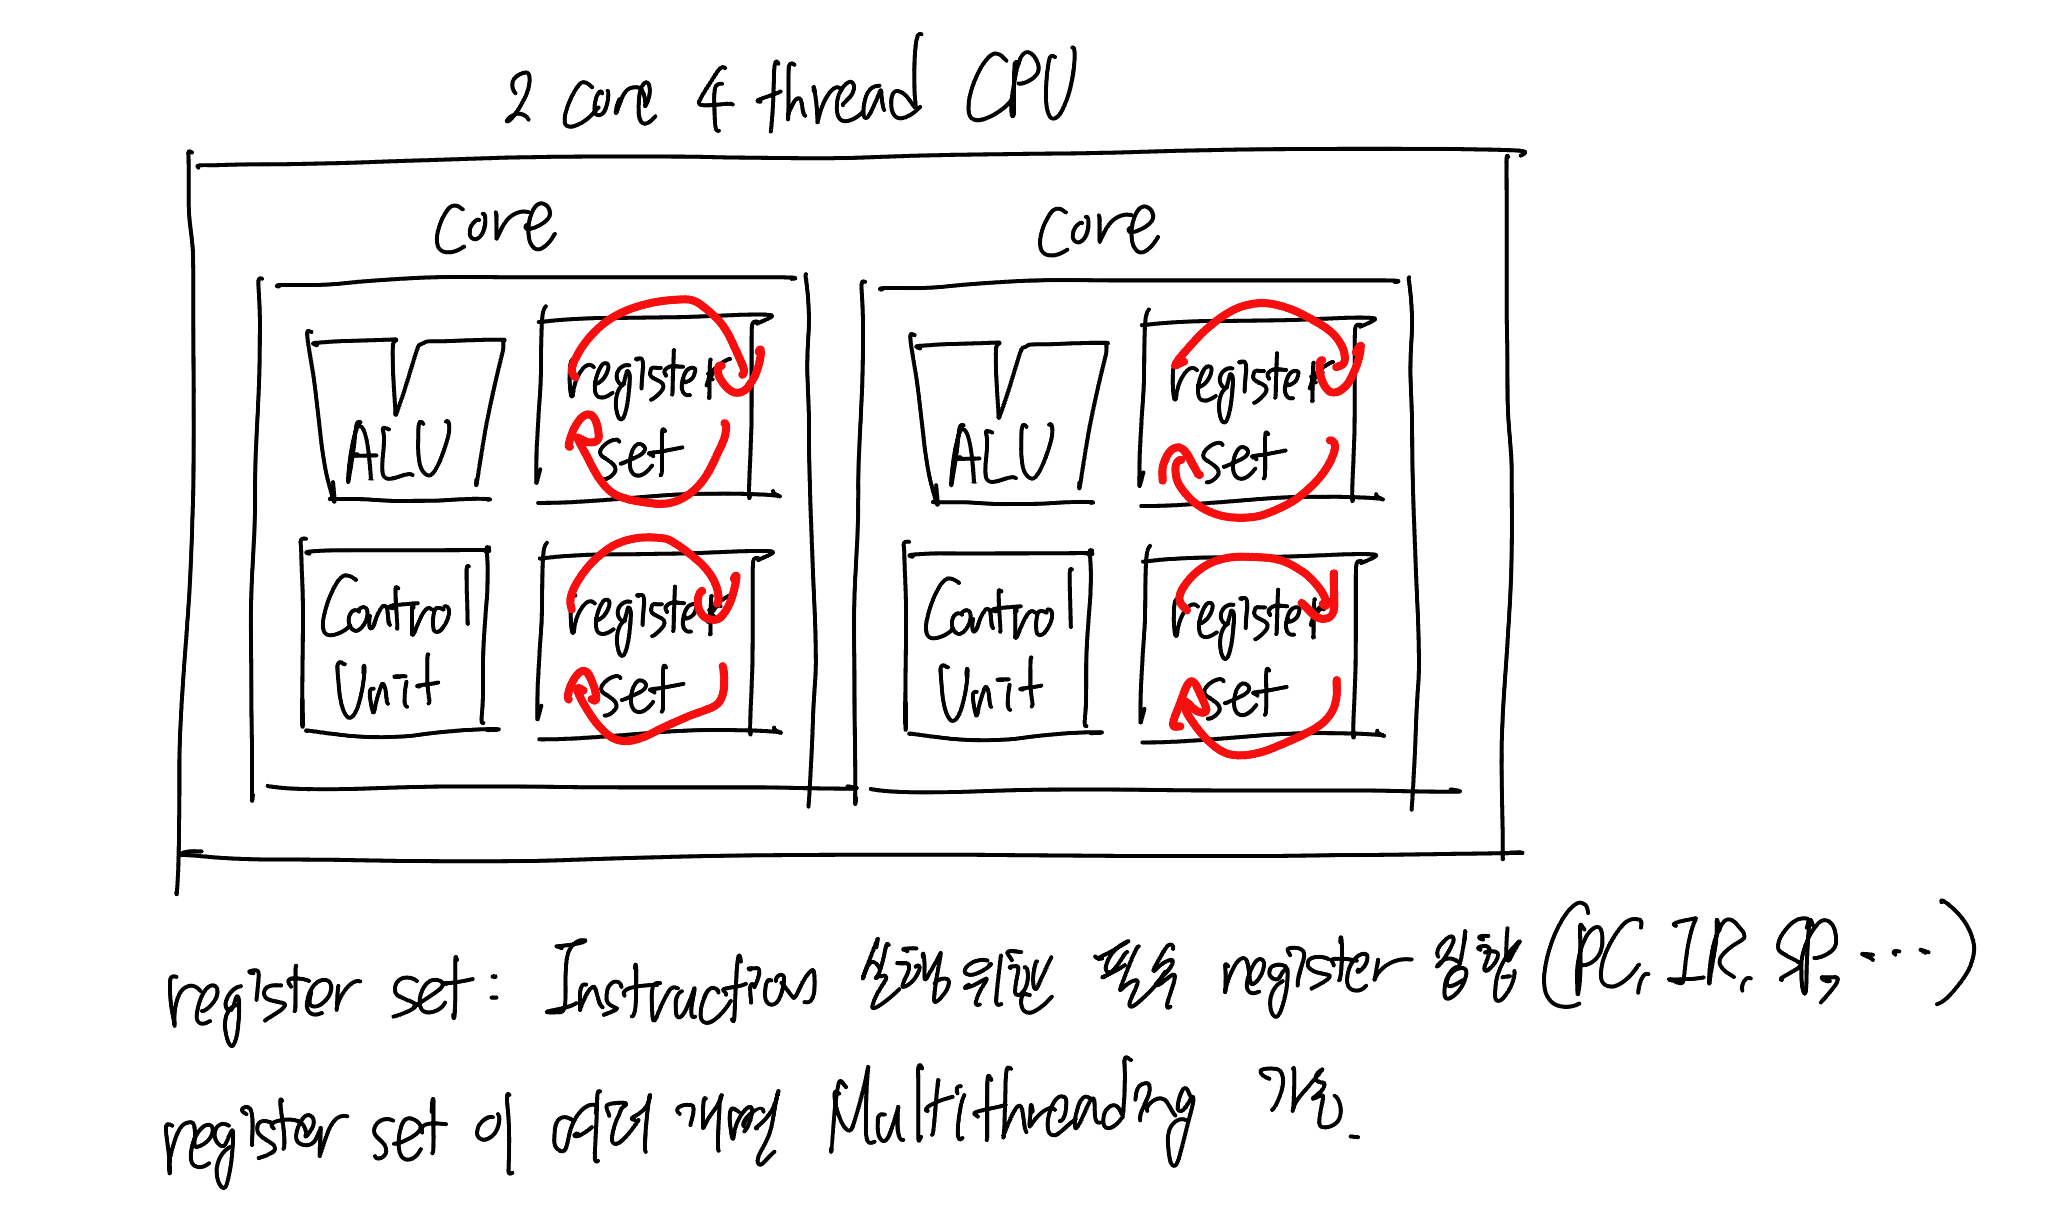 2 core 4 thread CPU
core
core
ALU
register
set
ALU
register
set
Control
Unit
register
set
Control
Unit
register
set
register set : Instruction 실행위한 필수 register 집합 (PC, IR, SP, ...)
register set 이 여러 개면 Multithreading 가능.